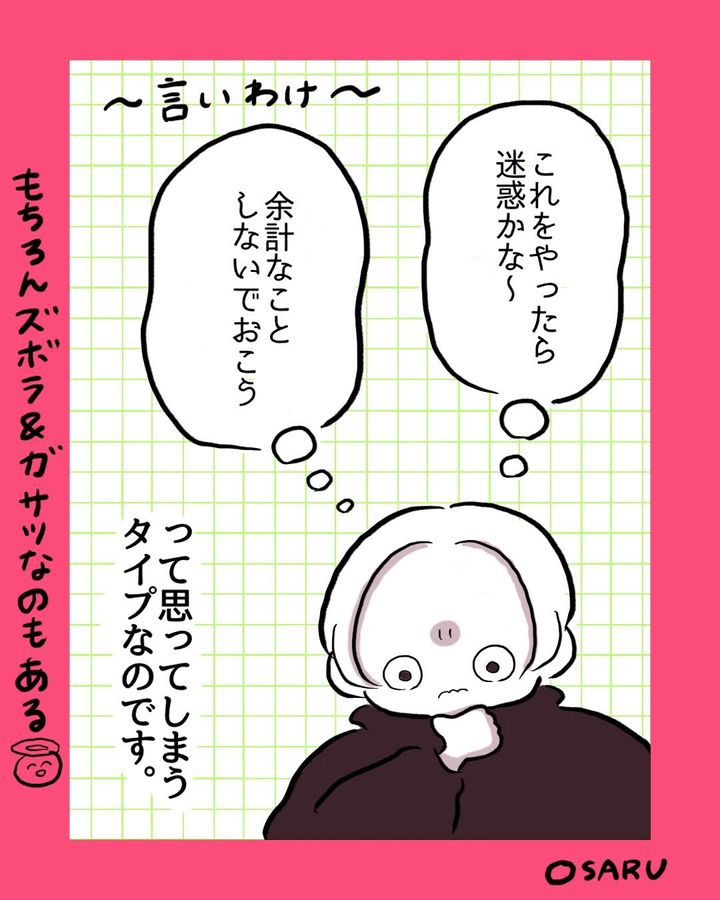 ～言いわけ～
これをやったら
迷惑かな～
余計なこと
しないでおこう
って思ってしまう
タイプなのです。
もちろんズボラ&ガサツなのもある
OSARU